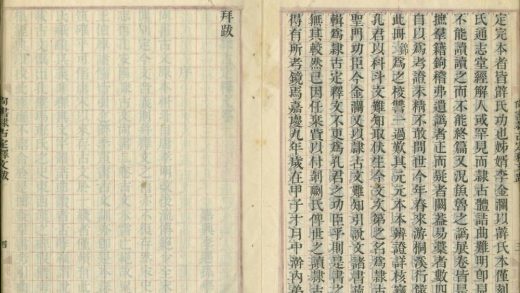 定完本者皆薛氏功也姊婿李金瀾以薛氏本僅刻
氏通志堂經解人或罕見而隸古體詰曲難明卽見
不能讀讀之而不能終篇又況魚魯之譌展卷皆是
摭羣籍鉤稽弗遺譌者正而疑者闕蓋易藁者數四
自以爲考證未精不敢問世今年春來游桐溪行篋
此冊錦爲之校讐一過歎其元元本本辯證詳核
孔君以科斗文難知取伏生今文次第之名爲隸古
聖門功臣今金瀾又以隸古文難知引說文諸書
輯爲隸古定釋文不更爲孔君之功臣乎則是書之
無其較然已因任采賓以付剞劂氏俾世之讀隸古
得有所考鏡焉嘉慶九年歲在甲子十月中澣內弟
拜跋
尚書隸古定釋文跋
四